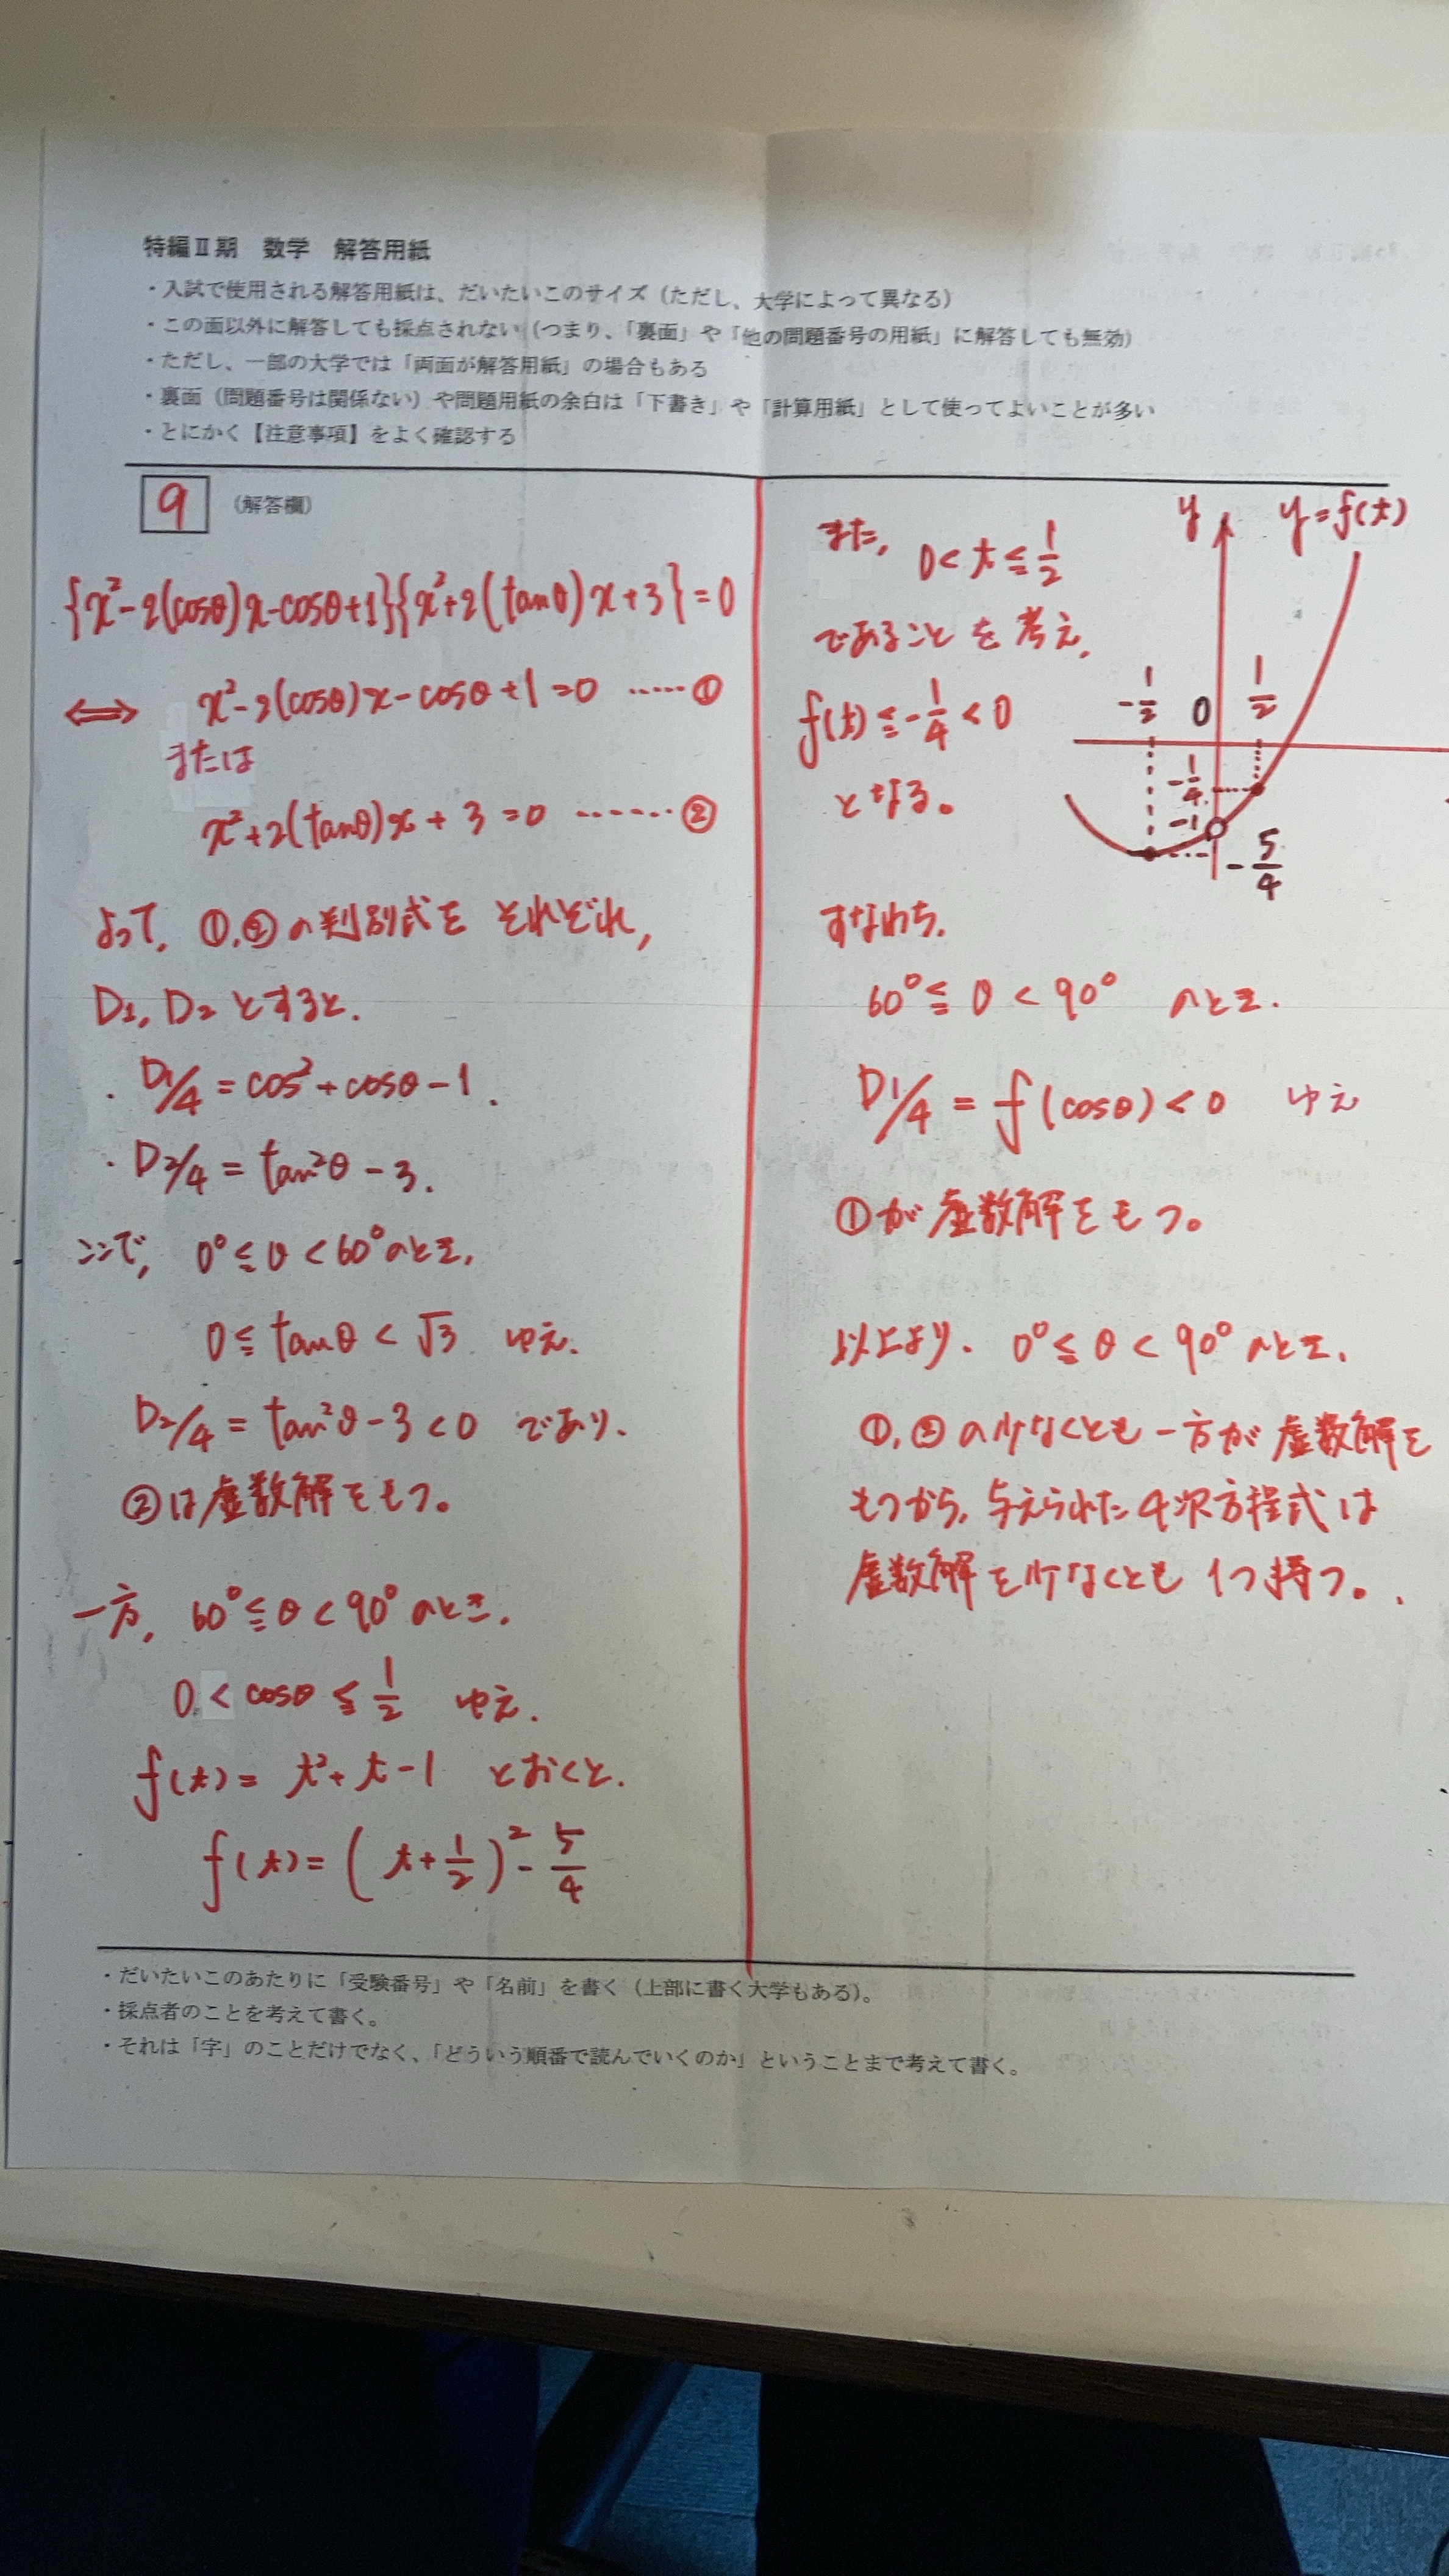 特編Ⅱ期 数学 解答用紙
・入試で使用される解答用紙は、だいたいこのサイズ（ただし、大学によって異なる）
・この面以外に解答しても採点されない（つまり、「裏面」や「他の問題番号の用紙」に解答しても無効）
・ただし、一部の大学では「両面が解答用紙」の場合もある
・裏面（問題番号は関係ない）や問題用紙の余白は「下書き」や「計算用紙」として使ってよいことが多い
・とにかく【注意事項】をよく確認する
9 （解答欄）
{x²-2(cosθ)x-cosθ+1}{x²+2(tanθ)x+3}=0
⇔ x²-2(cosθ)x-cosθ+1=0 ……①
または
x²+2(tanθ)x+3=0 ……②
よって, ①,②の判別式をそれぞれ,
D₁, D₂とすると.
・D₁/4=cos²+cosθ-1.
・D₂/4=tan²θ-3.
ここで, 0°≦θ<60°のとき,
0≦tanθ<√3 ゆえ.
D₂/4=tan²θ-3<0 であり.
②は虚数解をもつ。
一方, 60°≦θ<90°のとき.
0<cosθ≦1/2 ゆえ.
f(t)=t²+t-1 とおくと.
f(t)=(t+1/2)²-5/4
また, 0<t≦1/2
であることを考え,
f(t)≦-1/4<0
となる。
y y=f(t)
-1/2 0 1/2
-1/4
-1
-5/4
すなわち.
60°≦θ<90° のとき.
D₁/4=f(cosθ)<0 ゆえ
①が虚数解をもつ。
以上より. 0°≦θ<90°のとき.
①,②の少なくとも一方が虚数解を
もつから, 与えられた4次方程式は
虚数解を少なくとも1つ持つ。.
・だいたいこのあたりに「受験番号」や「名前」を書く（上部に書く大学もある）。
・採点者のことを考えて書く。
・それは「字」のことだけでなく、「どういう順番で読んでいくのか」ということまで考えて書く。